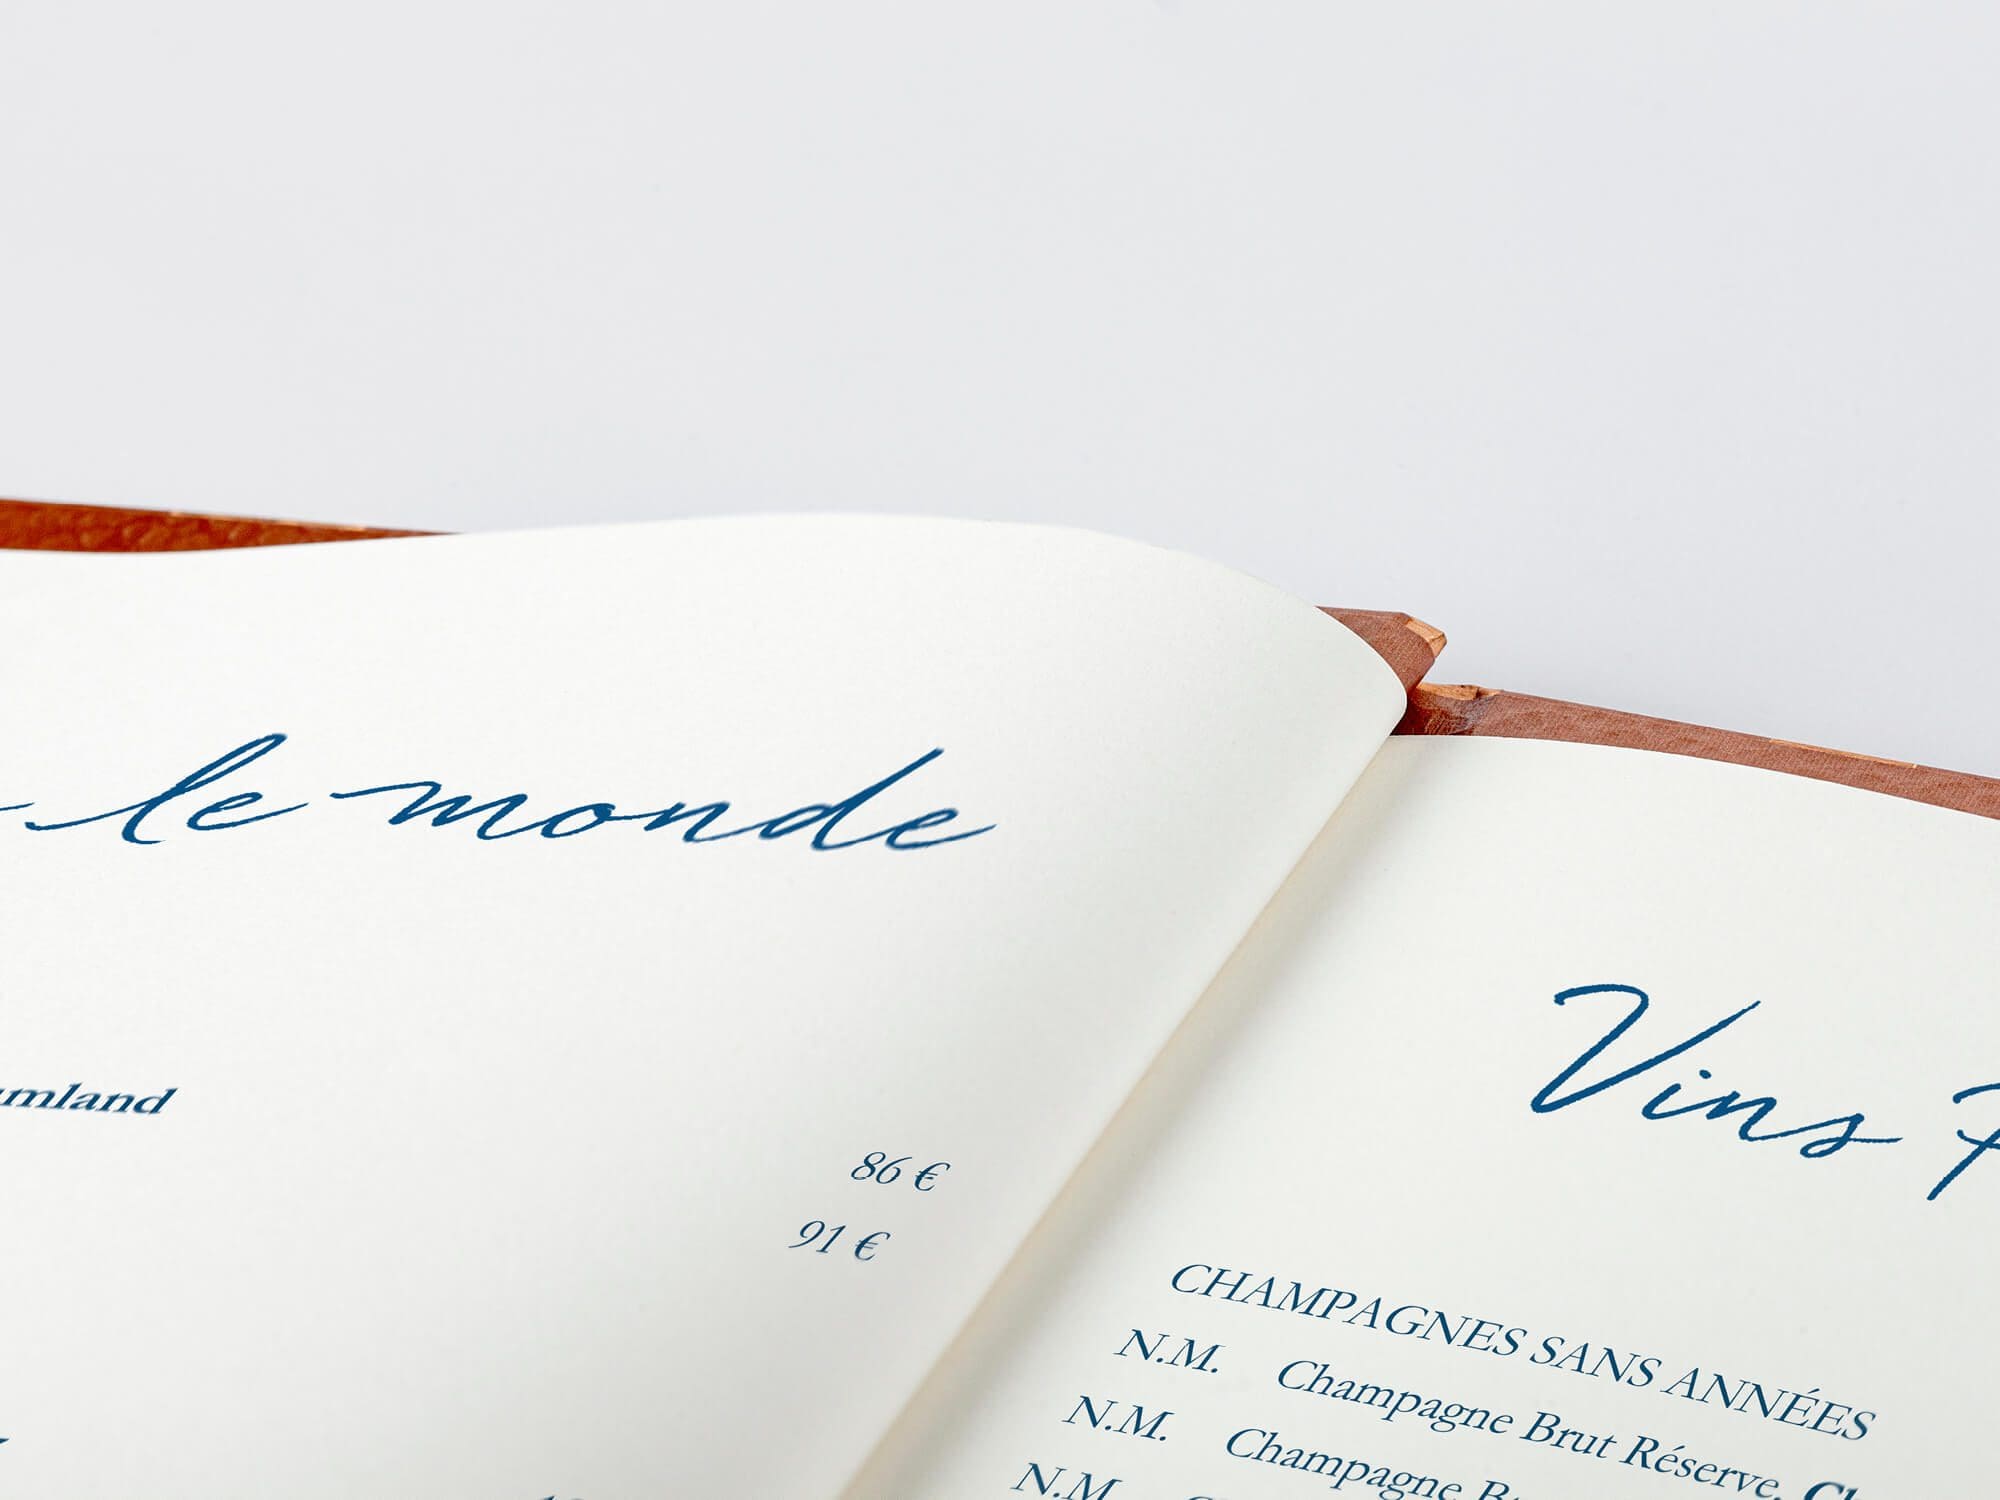 le monde
86 €
91 €
Vins
CHAMPAGNES SANS ANNÉES
N.M. Champagne Brut Réserve,
N.M. Champagne
N.M.